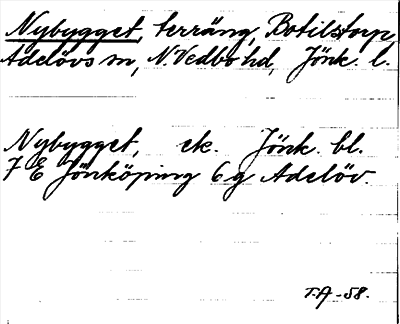 Nybygget, terräng, Botilstorp,
Adelövs sn, N. Vedbo hd, Jönk. l.
Nybygget, ek. Jönk. bl.
7 E Jönköping 6 g Adelöv.
T.A -58.